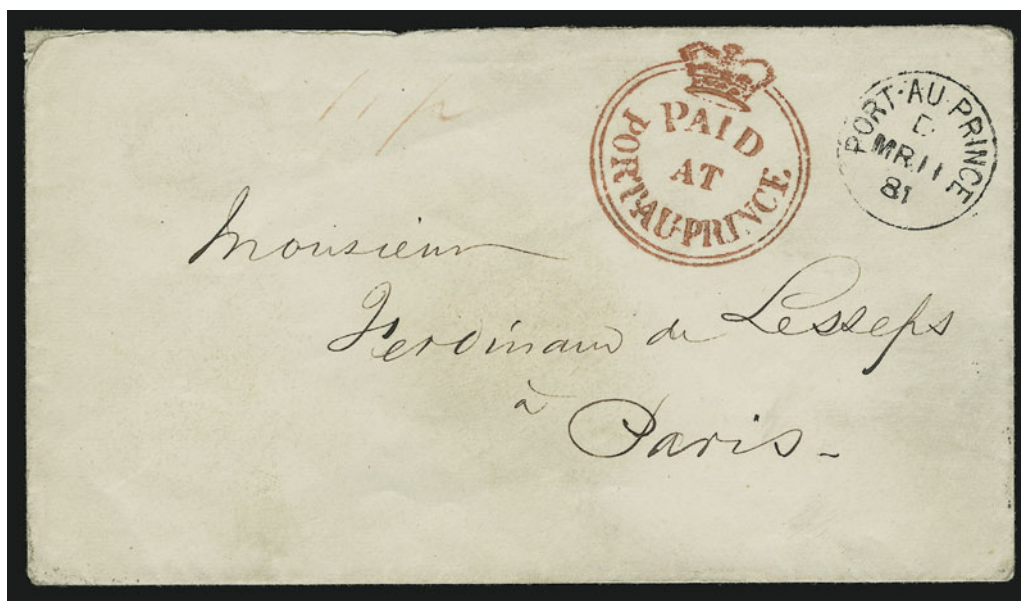 PAID
AT
PORT-AU-PRINCE
PORT-AU-PRINCE
D
MR 11
81
Monsieur
Ferdinand de Lesseps
à
Paris-